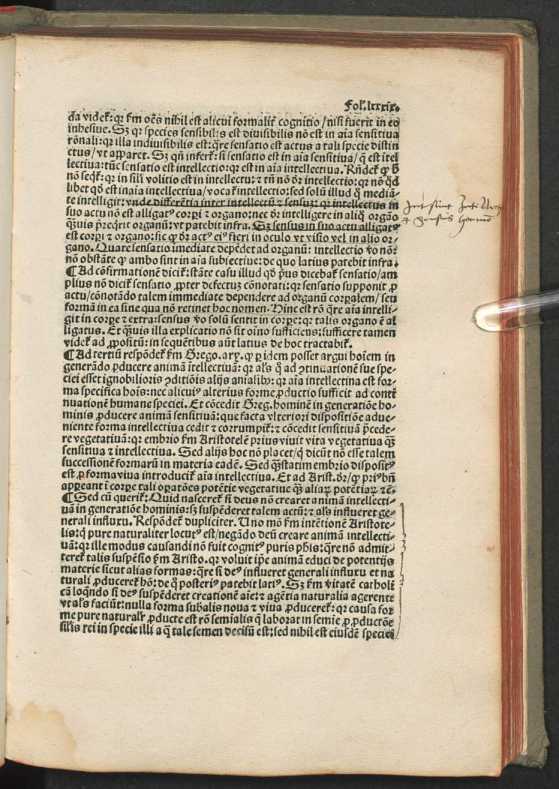 Fol. lxxix.
ꝺa videt᷑: qꝛ ẜm oẽs nihil est alicui formalit᷑ cognitio / nisi fuerit in eo
inhesiue. Sꝫ qꝛ species sensibil̃s est diuisibilis nõ est in aĩa sensitiua
rõnali: qꝛ illa indiuisibilis est: q̃re sensatio est actus a tali specie distin
ctus / vt apparet. Sꝫ qñ infert᷑: si sensatio est in aĩa sensitiua / q̃ est ĩtel
lectiua: tũc sensatio est intellectio: qꝛ est in aĩa intellectiua. Rñdet᷑ ꝙ h̃
nõ seqt᷑: qꝛ in sil̃i volitio est in intellectu: ⁊ tñ nõ dr̃ intellectio: qꝛ nõ q̃d
libet qđ est ina ĩa intellectiua / vocat᷑ intellectio: sed solũ illud q̃ mediã
te intelligit: vnde differẽtia inter intellectũ ⁊ sensuꝫ: qꝛ intellectus in
suo actu nõ est alligatꝰ corpi ⁊ organo: nec dr̃ intelligere in aliq̃ orgão
q̃uis p̃req̃rit organũ: vt patebit infra. Sꝫ sensus in suo actu alligatꝰ
est corpi ⁊ organo: sic ꝙ dr̃ actꝰ eiꝰ fieri in oculo vt visio vel in alio or-
gano. Quare sensatio imediate depẽdet ad organũ: intellectio ꝟo nõ:
nõ obstãte ꝙ ambo sint in aĩa subiectiue: de quo latius patebit infra.
¶Ad cõfirmationẽ dicit᷑: stãte casu illud qđ p̃us dicebat᷑ sensatio / am
plius nõ dicit᷑ sensatio ꝓpter defectuꝫ cõnotati: qꝛ sensatio supponit ꝓ
actu / cõnotãdo talem immediate dependere ad organũ corpalem / seu
formã in ea sine qua nõ retinet hoc nomen. Hinc est rõ q̃re aĩa intelli-
git in corpe ⁊ extra: sensus ꝟo solũ sentit in corpe: qꝛ talis organo ẽ al
ligatus. Et q̃uis illa explicatio nõ sit oĩno sufficiens: sufficere tamen
videt᷑ ad ꝓpositũ: in seq̃utẽibus aũt latius de hoc tractabit᷑.
¶Ad tertiũ respõdet᷑ ẜm Grego. arꝝ. ꝙ ꝑ idem posset argui hoĩem in
generãdo ꝓducere animã ĩtellectiuã: qꝛ al̃s q̃ ad ↄtinuationẽ sue spe-
ciei esset ignobilioris ↄditiõis alijs anialibꝰ: qꝛ aĩa intellectina est for-
ma specifica hoĩs: nec alicuiꝰ alterius forme ꝓductio sufficit ad contĩ
nuationẽ humane speciei. Et cõcedit Greg. hominẽ in generatiõe ho-
minis ꝓducere animã sensitiuã: que facta vlteriori dispositiõe adue-
niente forma intellectiua cedit ⁊ corrumpit᷑: ⁊ cõcedit sensitiuã p̃cede-
re vegetatiuã: qꝛ embrio ẜm Aristotelẽ prius viuit vita vegetatiua q̃ꝫ
sensitiua ⁊ intellectiua. Sed alijs hoc nõ placet / q̃ dicũt nõ esse talem
successionẽ formarũ in materia eadẽ. Sed q̃ꝫstatim embrio dispositꝰ
est ꝓ forma viua introducit᷑ aĩa intellectiua. Et ad Arist. dr̃ / ꝙ priꝰ bñ
apparent ĩ corpe tali oꝑatões potẽtie vegetatiue q̃ꝫ aliaꝝ potẽtiaꝝ ⁊c̃.
¶Sed cũ querit᷑: Quid nasceret᷑ si deus nõ crearet animã intellecti-
uã in generatiõe hominis: si suspẽderet talem actũ: ⁊ al̃s influeret ge-
nerali influxu. Respõdet᷑ dupliciter. Uno mõ ẜm intẽtionẽ Aristote-
lis: q̃ pure naturaliter locutꝰ est / negãdo deũ creare animã intellecti-
uã: qꝛ ille modus causandi nõ fuit cognitꝰ puris ph̃is: q̃re nõ admit-
teret᷑ talis suspẽsio ẜm Aristo. qꝛ voluit ip̃e animã educi de potentijs
materie sicut alias formas: q̃re si deꝰ influeret generali influxu et na
turali ꝓduceret᷑ hõ: de q̃ posteriꝰ patebit latiꝰ. Sꝫ ẜm ꝟitatẽ catholi-
cã loq̃ndo si deꝰ suspẽderet creationẽ aĩe: ⁊ agẽtia naturalia agerent
vt al̃s faciũt: nulla forma sub̃alis noua ⁊ viua ꝓduceret᷑: qꝛ causa for
me pure naturalit᷑ ꝓducte est rõ semialis q̃ laborat in semie ꝓ ꝓductõe
sil̃is rei in specie illi a q̃ tale semen decisũ est: sed nihil est eiusdẽ speciei